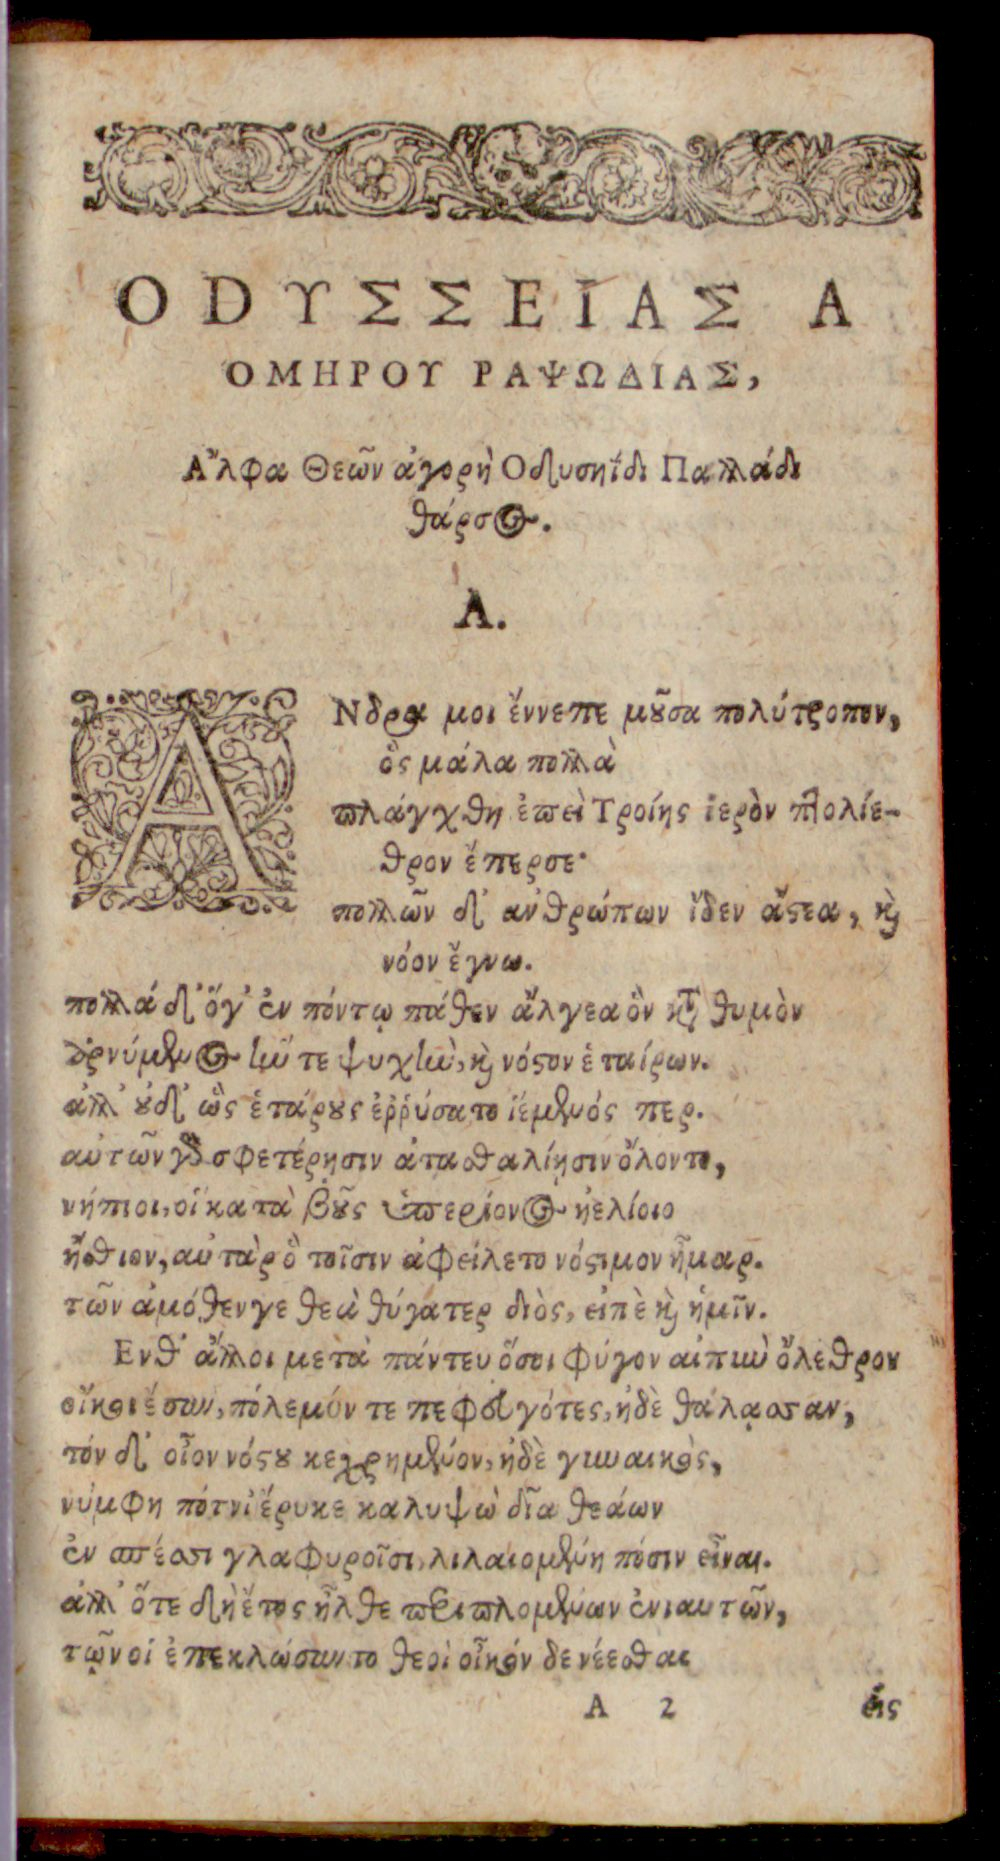 ΟDΥΣΣΕΙΑΣ Α
ὉΜΗΡΟΥ ΡΑΨΩΔΙΑΣ,
Α῎λφα Θεῶν ἀγορὴ Οδυσηΐδι Παλλάδι
θάρσος.
Α.
ΑΝδρα μοι ἔννεπε μοῦσα πολύτροπον,
ὃς μάλα πολλὰ
πλάγχθη ἐπεὶ Τροίης ἱερὸν πτολίε-
θρον ἔπερσε·
πολλῶν δ' ανθρώπων ἴδεν ἄστεα, καὶ
νόον ἔγνω.
πολλά δ' ὅγ' ἐν πόντῳ πάθεν ἄλγεα ὃν κατὰ θυμὸν
ἀρνύμενος ἥν τε ψυχὴν, καὶ νόστον ἑταίρων.
ἀλλ' οὐδ' ὣς ἑτάρους ἐῤῥύσατο ἱέμενός περ.
αὐτῶν γὰρ σφετέρησιν ἀτασθαλίησιν ὄλοντο,
νήπιοι, οἳ κατὰ βοῦς ὑπερίονος ἠελίοιο
ἤσθιον, αὐτὰρ ὃ τοῖσιν ἀφείλετο νόστιμον ἦμαρ.
τῶν ἀμόθεν γε θεὰ θύγατερ διὸς, εἰπὲ καὶ ἡμῖν.
Ενθ' ἄλλοι μετὰ πάντευ ὅσοι φύγον αἰπὺν ὄλεθρον
οἴκοι ἔσαν, πόλεμόν τε πεφευγότες, ἠδὲ θάλασσαν,
τόν δ' οἶον νόστου κεχρημένον, ἠδὲ γυναικὸς,
νύμφη πότνι' ἔρυκε καλυψὼ δῖα θεάων
ἐν σπέσσι γλαφυροῖσι, λιλαιομένη πόσιν εἶναι.
ἀλλ' ὅτε δὴ ἔτος ἦλθε περιπλομένων ἐνιαυτῶν,
τῷν οἱ ἐπεκλώσαντο θεοὶ οἶκόν δε νέεσθαι
Α 2 εἰς